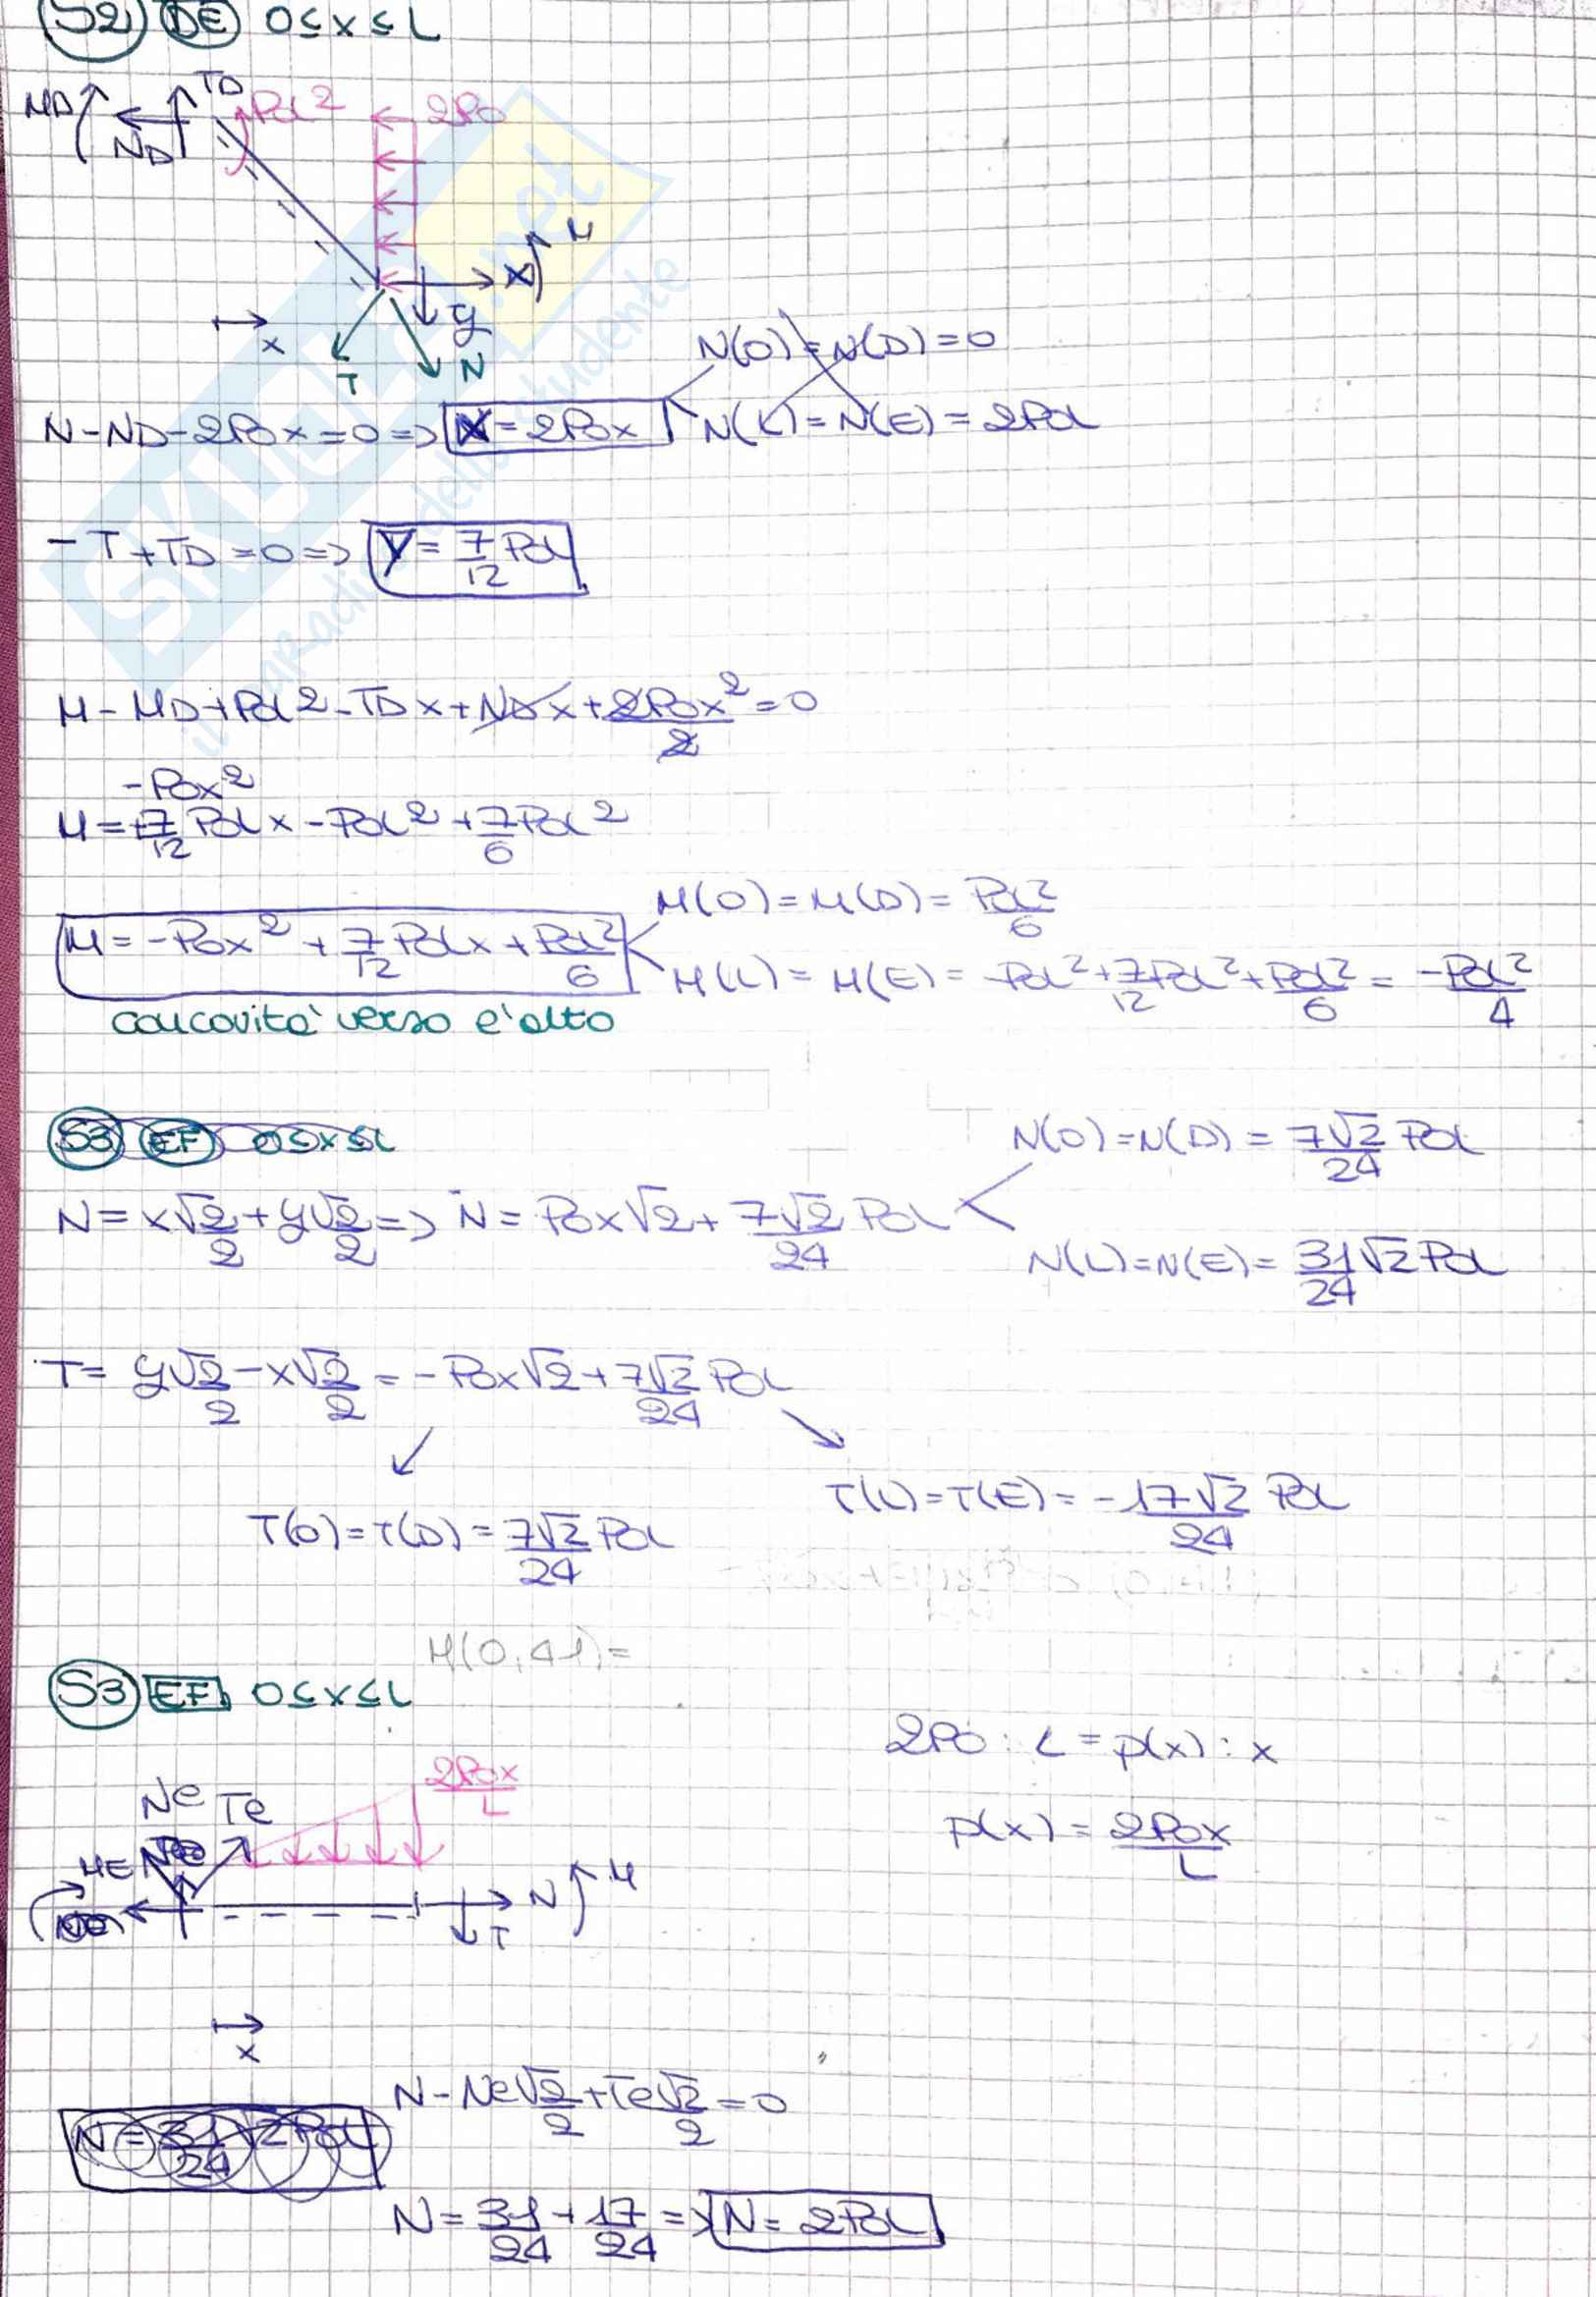 S2 DE 0≤x≤L
MD ND TD P0L² 2P0
X M
y
x T N
N(0)=N(D)=0
N-ND-2P0x=0 => X=2P0x N(L)=N(E)=2P0L
-T+TD=0 => Y=7/12 P0L
M-MD+P0L²-TDx+NDx+2P0x²/2=0
-P0x²
M=+7/12 P0Lx-P0L²+7/6 P0L²
M(0)=M(D)=P0L²/6
M=-P0x²+7/12 P0Lx+P0L²/6
M(L)=M(E)=-P0L²+7/12 P0L²+P0L²/6=-P0L²/4
concavità verso l'alto
S3 EF 0≤x≤L
N(0)=N(D)=7√2/24 P0L
N=x√2/2+y√2/2 => N=P0x√2+7√2/24 P0L
N(L)=N(E)=31/24 √2 P0L
T=y√2/2-x√2/2=-P0x√2+7√2/24 P0L
T(L)=T(E)=-17√2/24 P0L
T(0)=T(D)=7√2/24 P0L
M(0,41)=
S3 EF 0≤x≤L
2P0:L=p(x):x
2P0x/L
Ne Te
p(x)=2P0x/L
ME N M
T
x
N-Ne√2/2+Te√2/2=0
N=31/24 √2 P0L
N=31/24+17/24 => N=2P0L
SKUOLA.net
il paradiso dello studente